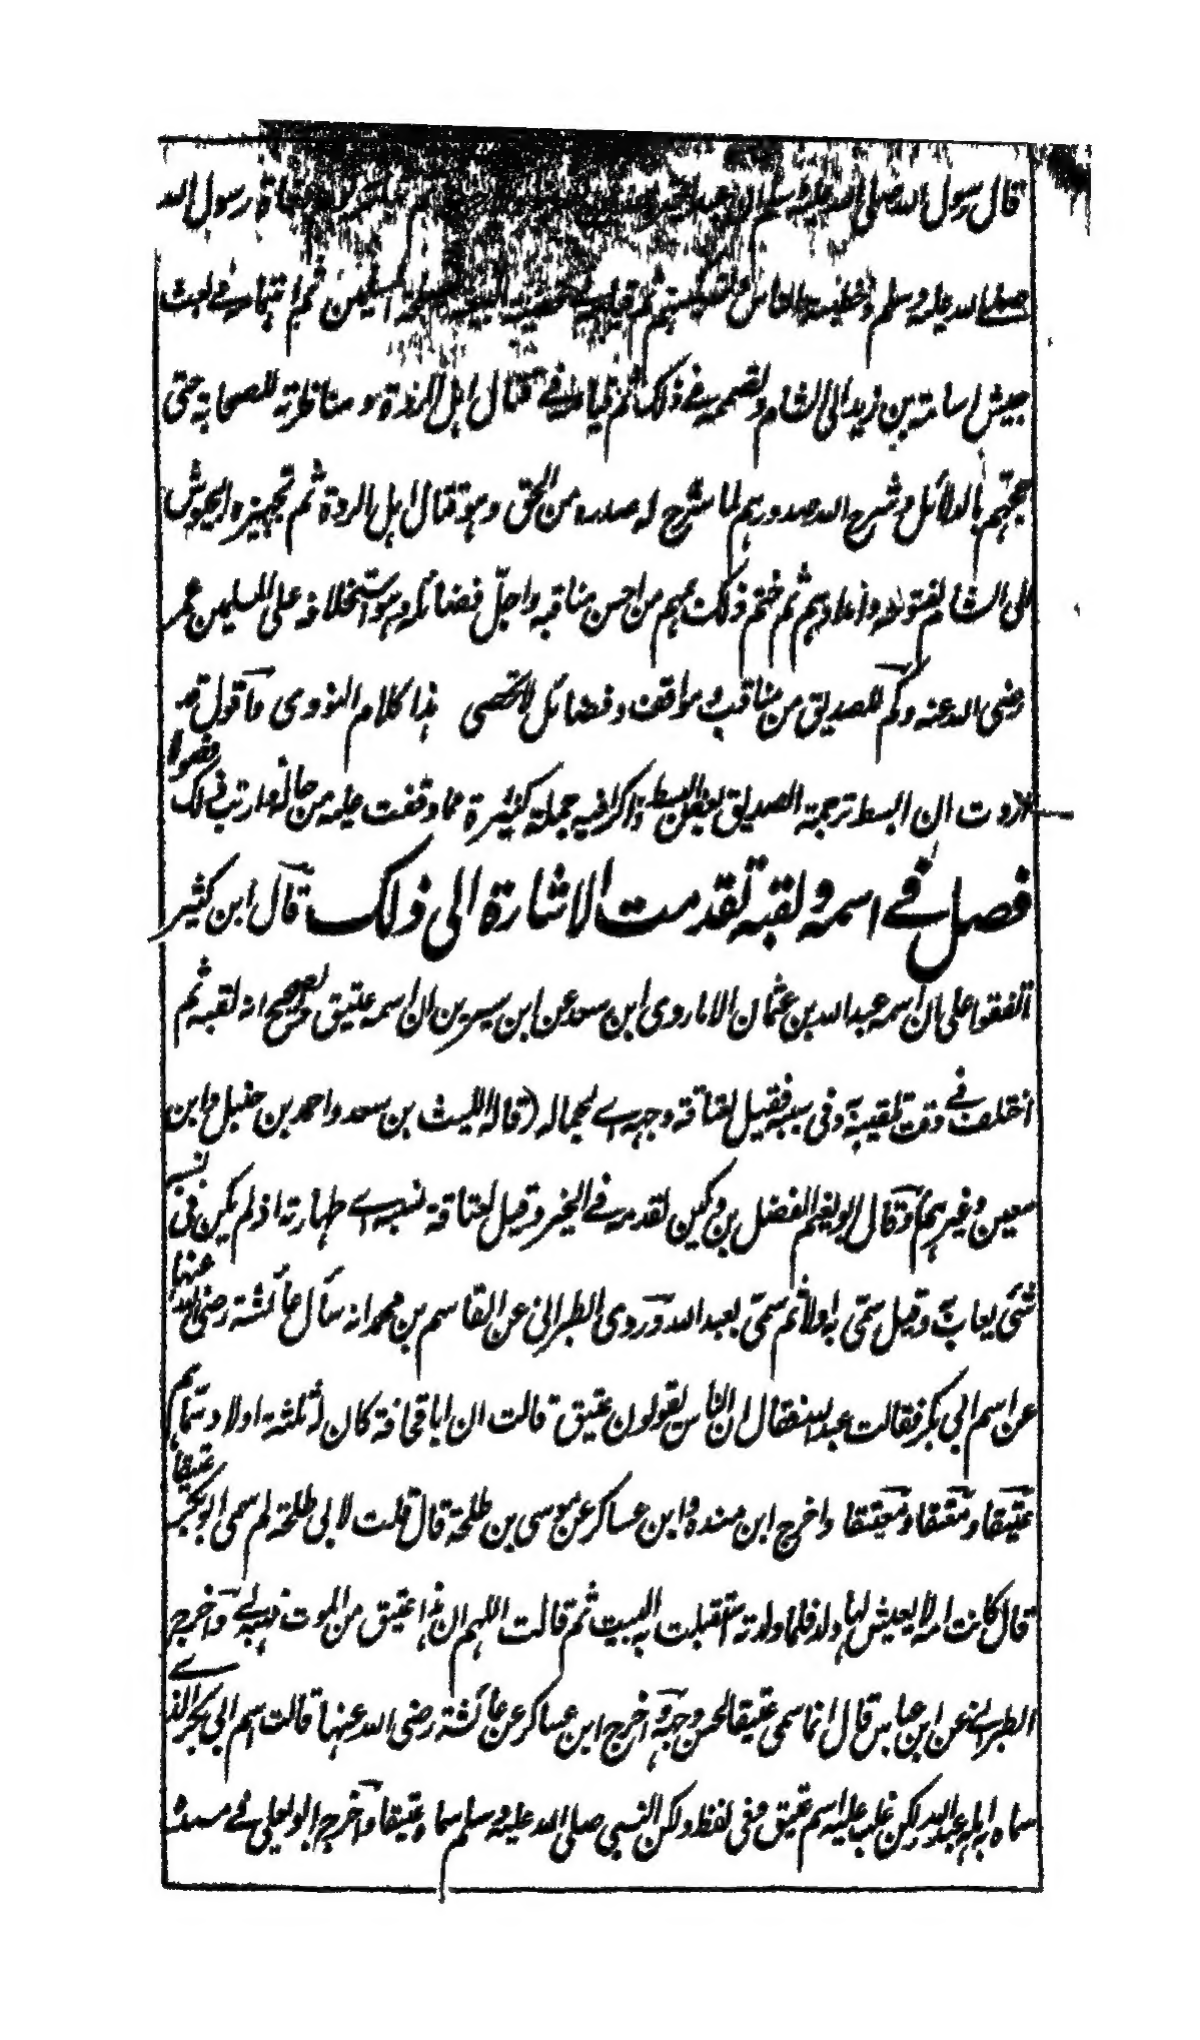 قال رسول الله صلى الله عليه وسلم ان عبدا خيره وفاة رسول الله
صلى الله عليه وسلم وخطبته الناس وتسكينهم ثم قيامه في قضية البيعة لمصلحة المسلمين ثم اهتمامه في بعث
جيش اسامة بن زيد الى الشام وتصميمه في ذلك ثم قيامه في قتال اهل الردة و مناظرته للصحابة حتى
حجهم بالدلائل وشرح الله صدورهم لما شرح له صدره من الحق وهو قتال اهل الردة ثم تجهيزه الجيوش
الى الشام لفتوحه وامدادهم ثم ختم ذلك بمهم من احسن مناقبه واجل فضائله وهو استخلافه على المسلمين عمر
رضى الله عنه وكم للصديق من مناقب ومواقف وفضائل لا تحصى هذا كلام النووى واقول قد
اردت ان ابسط ترجمة الصديق بعض البسط ذاكرا فيه جملة كثيرة مما وقفت عليه من حاله وارتب ذلك فصولا
فصل في اسمه ولقبه تقدمت الاشارة الى ذلك قال ابن كثير
اتفقوا على ان اسمه عبد الله بن عثمان الا ما روى ابن سعد عن ابن سيرين ان اسمه عتيق والصحيح انه لقبه ثم
اختلف في وقت تلقيبه وفى سببه فقيل لعتاقة وجهه اے لجماله (قاله الليث بن سعد واحمد بن حنبل وابن
معين وغيرهم) وقال ابو نعيم الفضل بن دكين لقدمه في الخير وقيل لعتاقة نسبه اے طهارته اذ لم يكن فى نسبه
شئى يعاب به وقيل سمى به اولا ثم سمى بعبد الله وروى الطبرانى عن القاسم بن محمد انه سأل عائشة رضى الله عنها
عن اسم ابى بكر فقالت عبد الله فقال ان الناس يقولون عتيق قالت ان ابا قحافة كان له ثلثة اولاد سماهم
عتيقا ومعتقا ومعيتقا واخرج ابن منده وابن عساكر عن موسى بن طلحة قال قلت لابى طلحة لم سمى ابو بكر عتيقا
قال كانت امه لا يعيش لها ولد فلما ولدته استقبلت به البيت ثم قالت اللهم ان هذا عتيق من الموت فهبه لى واخرج
الطبرانے عن ابن عباس قال انما سمى عتيقا لحسن وجهه واخرج ابن عساكر عن عائشة رضى الله عنها قالت اسم ابى بكر الذے
سماه به اهله عبد الله ولكن غلب عليه اسم عتيق وفى لفظ ولكن النبى صلى الله عليه وسلم سماه عتيقا واخرج ابو يعلى فے مسنده